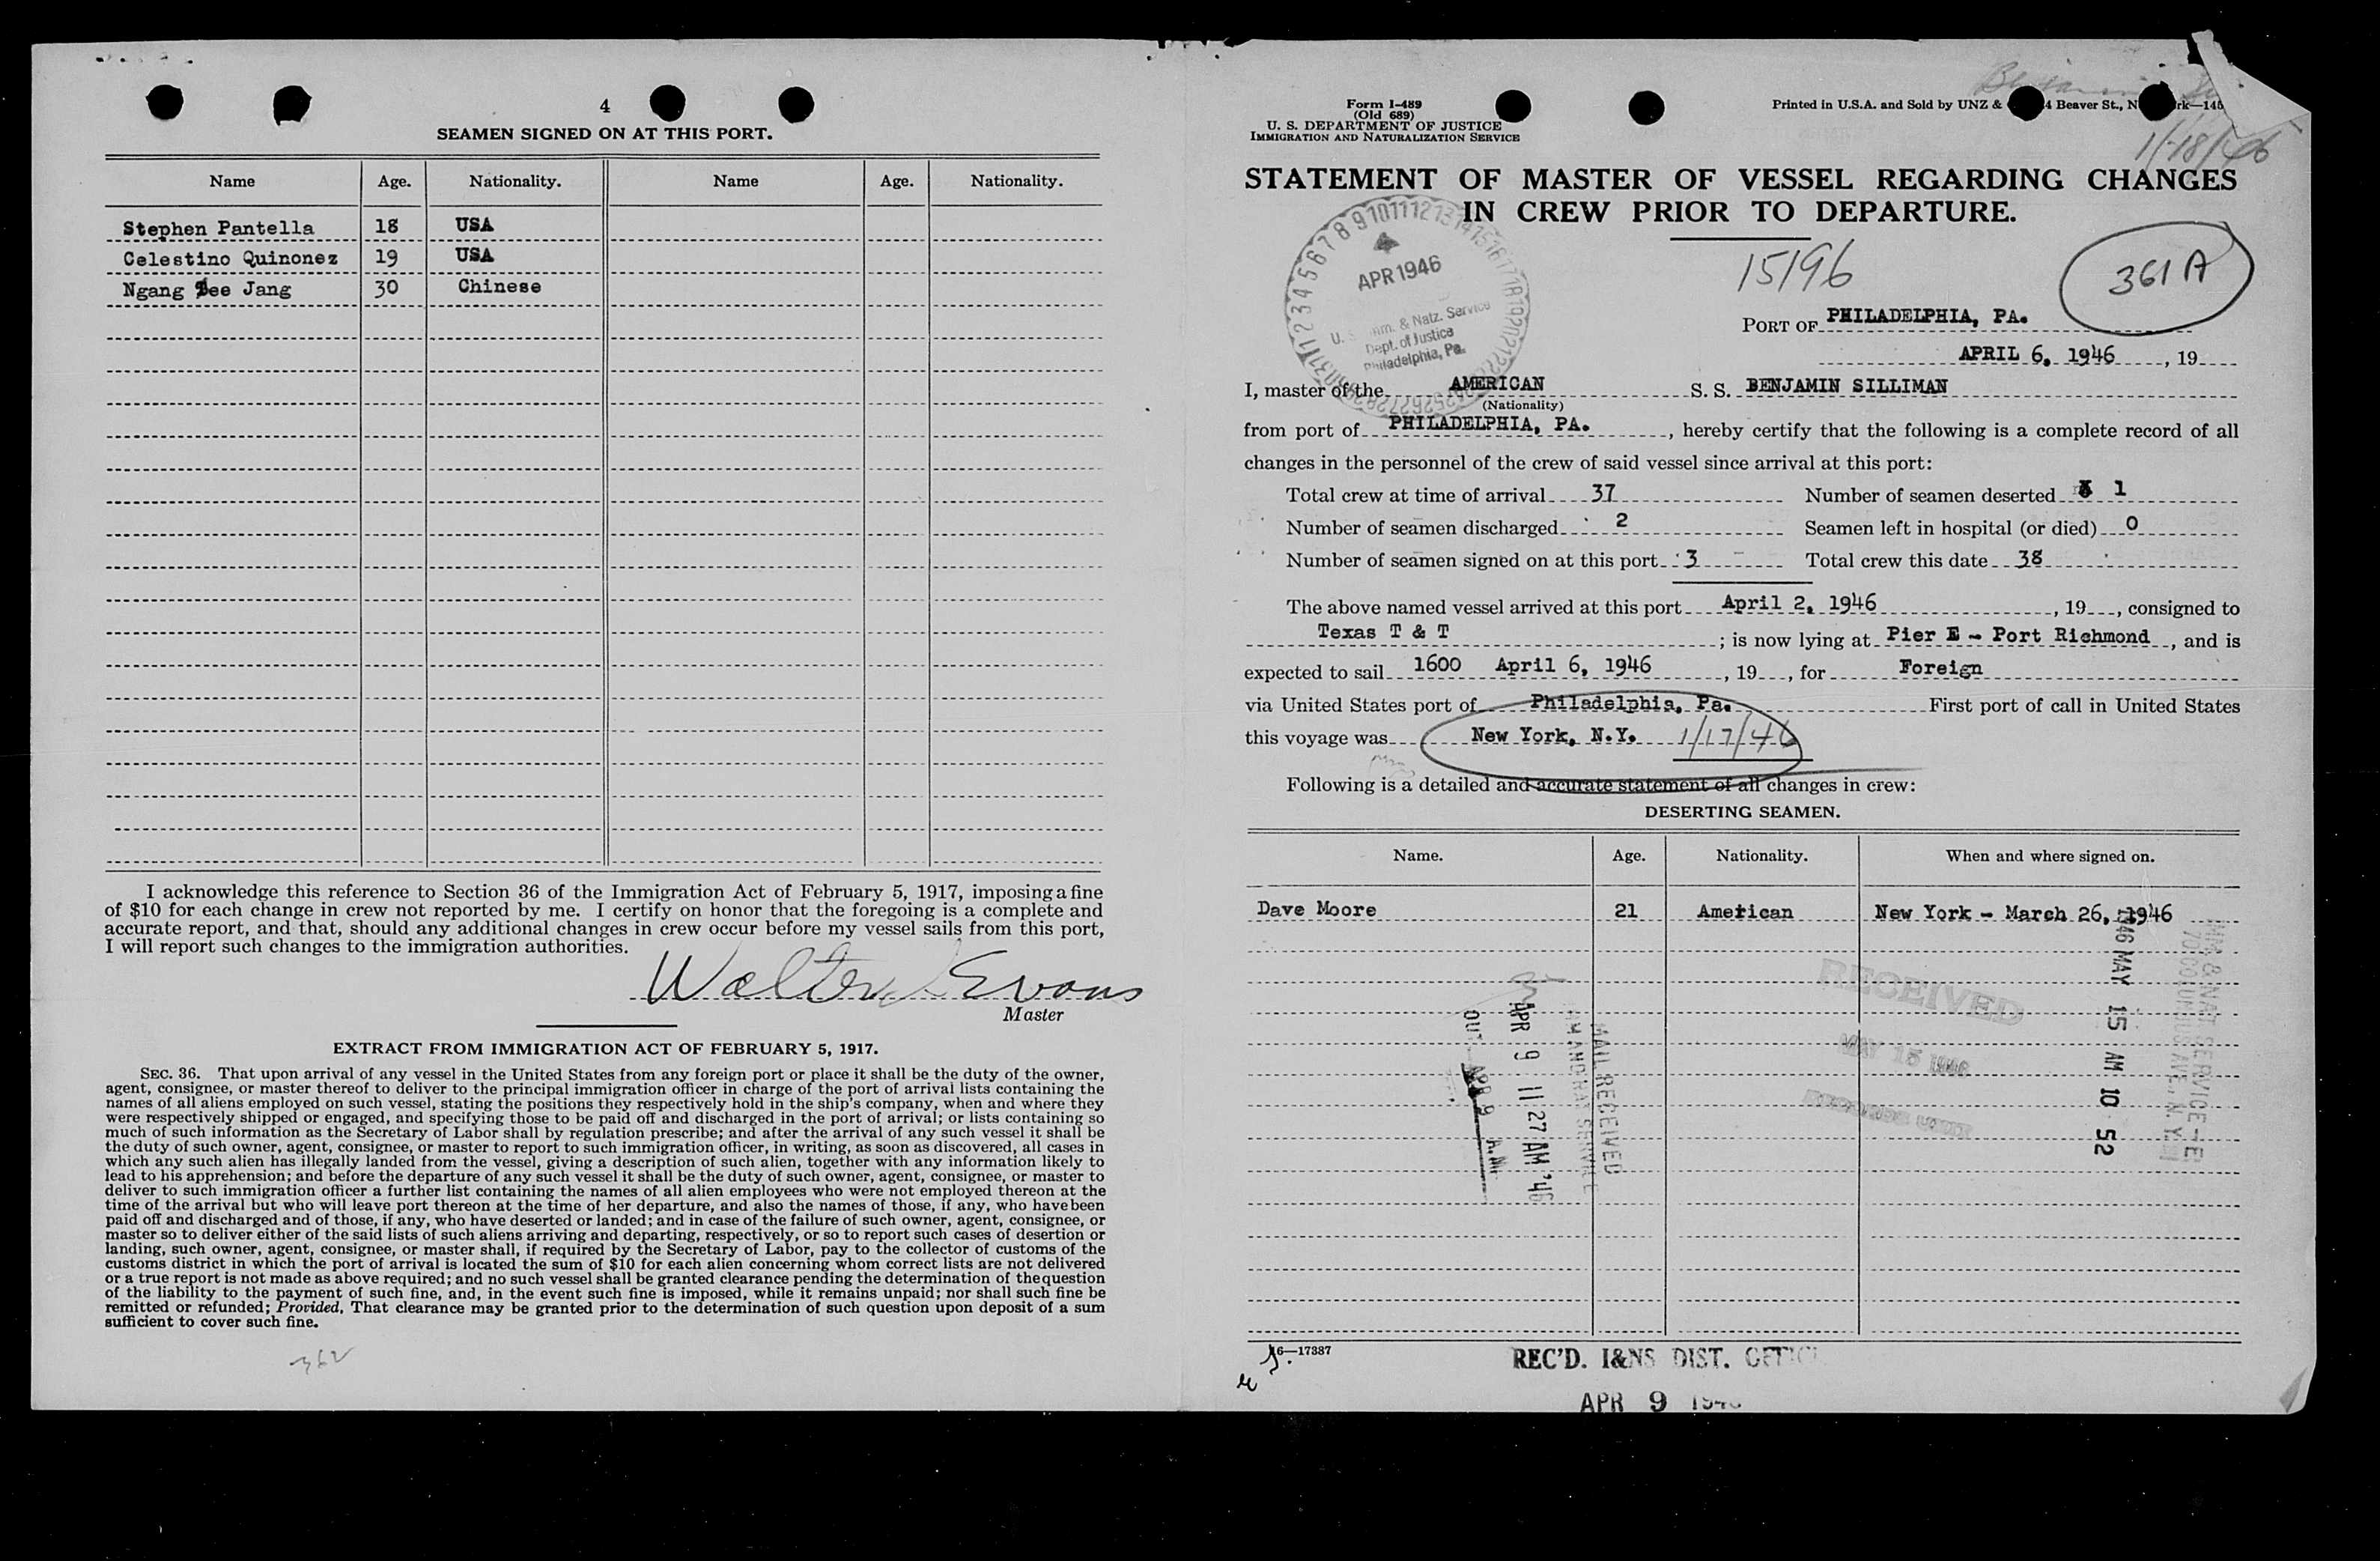 4
SEAMEN SIGNED ON AT THIS PORT.
Name Age. Nationality. Name Age. Nationality.
Stephen Pantella 18 USA
Celestino Quinonez 19 USA
Ngang See Jang 30 Chinese
I acknowledge this reference to Section 36 of the Immigration Act of February 5, 1917, imposing a fine
of $10 for each change in crew not reported by me. I certify on honor that the foregoing is a complete and
accurate report, and that, should any additional changes in crew occur before my vessel sails from this port,
I will report such changes to the immigration authorities.
Walter Evans
Master
EXTRACT FROM IMMIGRATION ACT OF FEBRUARY 5, 1917.
SEC. 36. That upon arrival of any vessel in the United States from any foreign port or place it shall be the duty of the owner,
agent, consignee, or master thereof to deliver to the principal immigration officer in charge of the port of arrival lists containing the
names of all aliens employed on such vessel, stating the positions they respectively hold in the ship's company, when and where they
were respectively shipped or engaged, and specifying those to be paid off and discharged in the port of arrival; or lists containing so
much of such information as the Secretary of Labor shall by regulation prescribe; and after the arrival of any such vessel it shall be
the duty of such owner, agent, consignee, or master to report to such immigration officer, in writing, as soon as discovered, all cases in
which any such alien has illegally landed from the vessel, giving a description of such alien, together with any information likely to
lead to his apprehension; and before the departure of any such vessel it shall be the duty of such owner, agent, consignee, or master to
deliver to such immigration officer a further list containing the names of all alien employees who were not employed thereon at the
time of the arrival but who will leave port thereon at the time of her departure, and also the names of those, if any, who have been
paid off and discharged and of those, if any, who have deserted or landed; and in case of the failure of such owner, agent, consignee, or
master so to deliver either of the said lists of such aliens arriving and departing, respectively, or so to report such cases of desertion or
landing, such owner, agent, consignee, or master shall, if required by the Secretary of Labor, pay to the collector of customs of the
customs district in which the port of arrival is located the sum of $10 for each alien concerning whom correct lists are not delivered
or a true report is not made as above required; and no such vessel shall be granted clearance pending the determination of the question
of the liability to the payment of such fine, and, in the event such fine is imposed, while it remains unpaid; nor shall such fine be
remitted or refunded; Provided, That clearance may be granted prior to the determination of such question upon deposit of a sum
sufficient to cover such fine.
362
Form I-489
(Old 689)
U. S. DEPARTMENT OF JUSTICE
IMMIGRATION AND NATURALIZATION SERVICE
Benjamin
Printed in U.S.A. and Sold by UNZ & 4 Beaver St., N rk—148
1/18/46
STATEMENT OF MASTER OF VESSEL REGARDING CHANGES
IN CREW PRIOR TO DEPARTURE.
15196
361 A
APR 1946
U. S. Imm. & Natz. Service
Dept. of Justice
Philadelphia, Pa.
PORT OF PHILADELPHIA, PA.
APRIL 6, 1946, 19
I, master of the AMERICAN S. S. BENJAMIN SILLIMAN
(Nationality)
from port of PHILADELPHIA, PA., hereby certify that the following is a complete record of all
changes in the personnel of the crew of said vessel since arrival at this port:
Total crew at time of arrival 37 Number of seamen deserted 1
Number of seamen discharged 2 Seamen left in hospital (or died) 0
Number of seamen signed on at this port 3 Total crew this date 38
The above named vessel arrived at this port April 2, 1946, 19, consigned to
Texas T & T; is now lying at Pier E - Port Richmond, and is
expected to sail 1600 April 6, 1946, 19, for Foreign
via United States port of Philadelphia, Pa. First port of call in United States
this voyage was New York, N.Y. 1/17/46
Following is a detailed and accurate statement of all changes in crew:
DESERTING SEAMEN.
Name. Age. Nationality. When and where signed on.
Dave Moore 21 American New York - March 26, 1946
RECEIVED
MAY 15 1946
1946 MAY 15 AM 10 52
IMM & NAT SERVICE
70 COLUMBUS AVE. N.Y.
MAIL RECEIVED
APR 9 11 27 AM '46
OUT APR 9 A.M.
16—17387
REC'D. I&NS DIST. OFFICE
APR 9 1946